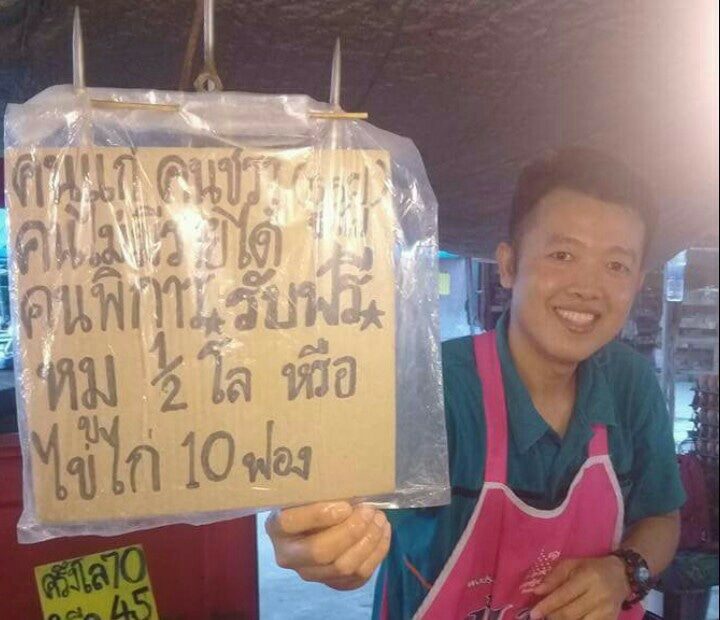 คนแก่ คนชรา
คนไม่มีรายได้
คนพิการ ★ รับฟรี ★
หมู 1/2 โล หรือ
ไข่ไก่ 10 ฟอง
ครึ่งโล 70
45